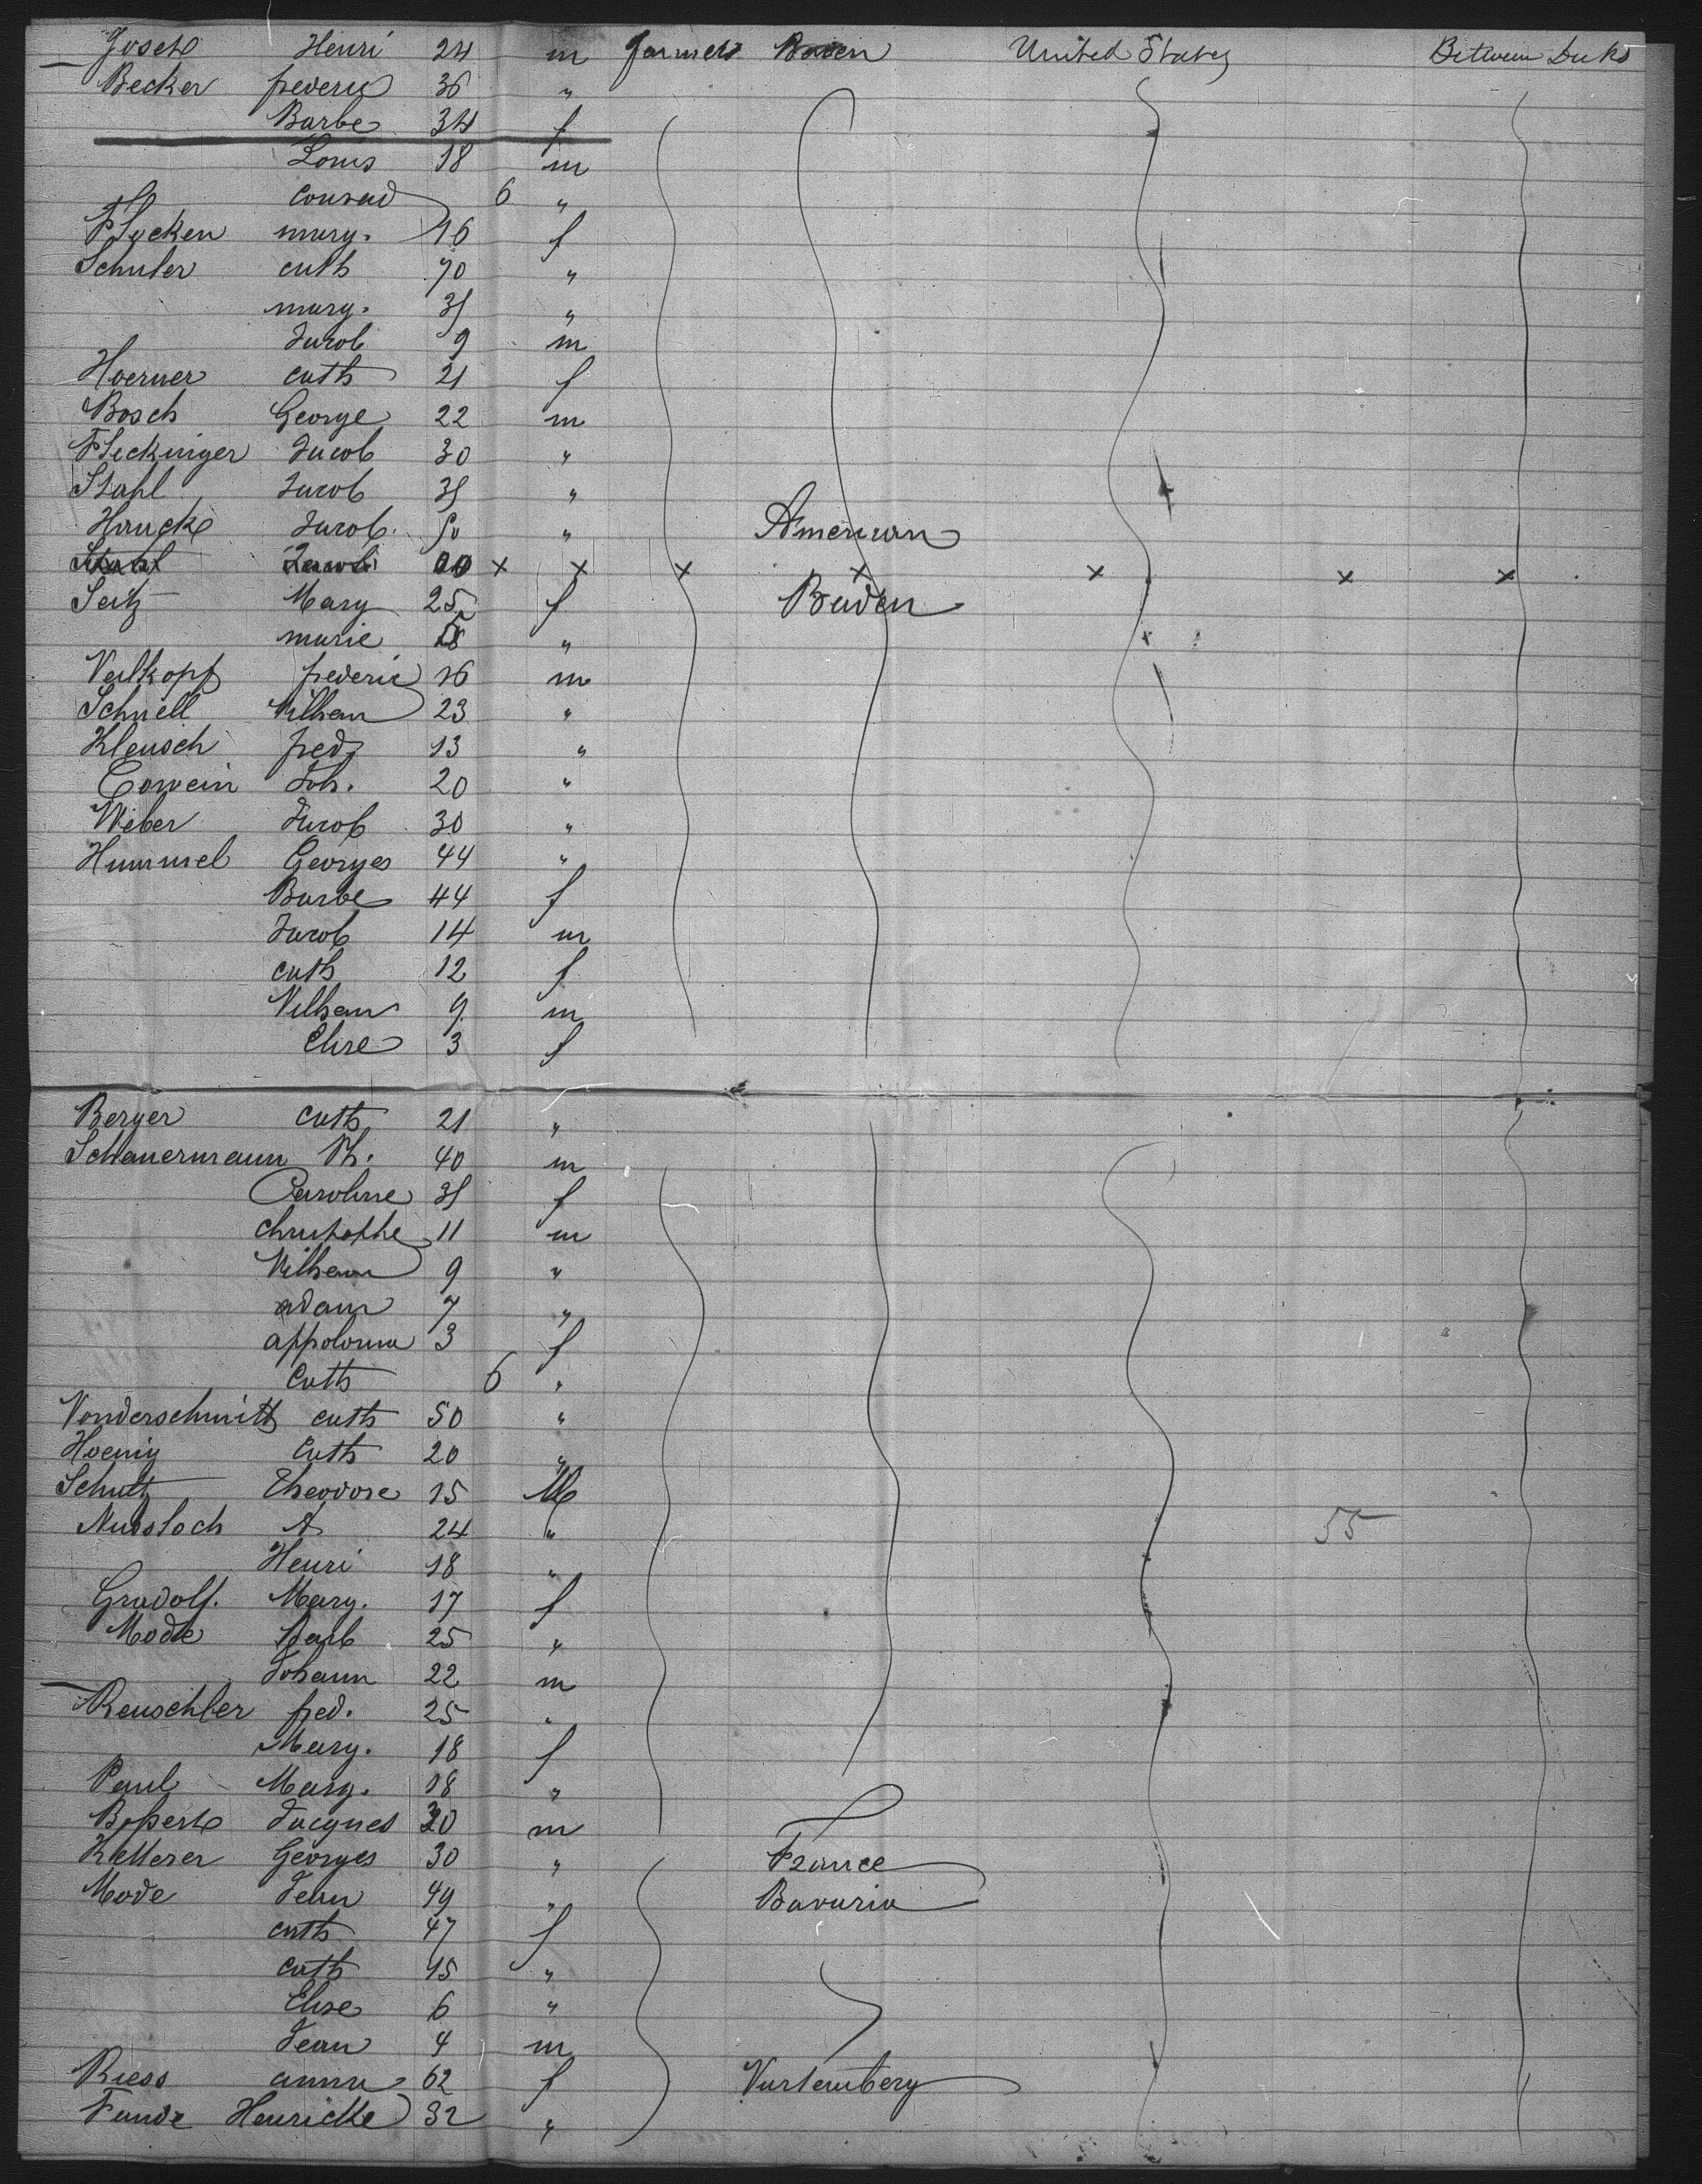 Josché Henri 24 m farmers Baden United States Between Decks
Becker frederic 36 "
Barbe 34 f
Louis 18 m
Conrad 6 "
Flocken mary. 16 f
Schuler cath 70 "
mary. 35 "
Jacob 9 m
Hoerner cath 21 f
Bosch George 22 m
Fleckinger Jacob 30 "
Stahl Jacob 35 "
Haucke Jacob. 50 " American
Stahl Jacob x x x x x x x
Seitz Mary 25 f Baden
marie 18 "
Valkopf frederic 16 m
Schnell Wilhem 23 "
Klensch fred 13 "
Corwein Joh. 20 "
Weber Jacob 30 "
Hummel Georges 44 "
Barbe 44 f
Jacob 14 m
cath 12 f
Wilhem 9 m
Elise 3 f
Berger Cath 21 "
Schauermann Ph. 40 m
Caroline 35 f
christophe 11 m
Wilhem 9 "
adam 7 "
appolonia 3 f
Cath 6 "
Vonderschmitt cath 50 "
Hoenig Cath 20 "
Schutz Theodore 15 M
Nussloch A 24 " 55
Henri 18 "
Gradolf. Mary. 17 f
Mode Barb 25 "
Johann 22 m
Reuschler fred. 25 "
Mary. 18 f
Paul Mary. 18 "
Jacques 30 m
Ketterer Georges 30 " France
Mode Jean 49 " Bavaria
cath 47 f
cath 15 "
Elise 6 "
Jean 4 m
Riess anna 62 f Vurtemberg
Henricke 32 "